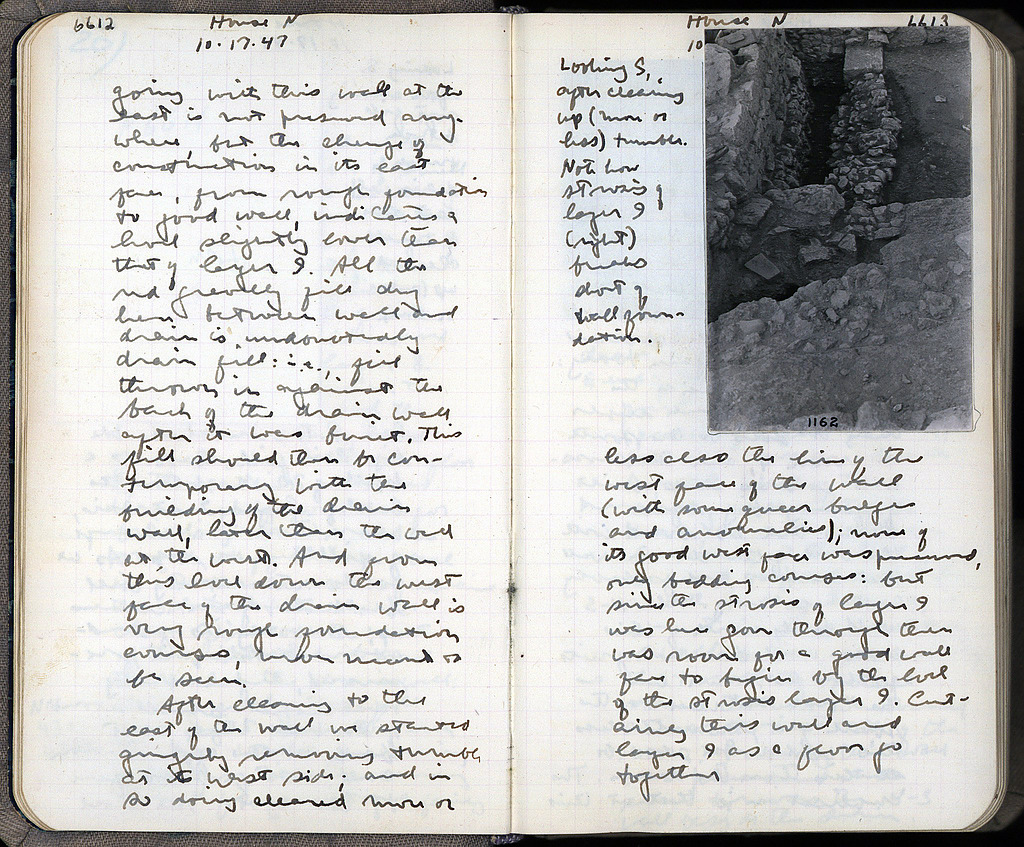 6612
House N
10.17.47
going with this wall at the
east is not preserved any-
where, but the change of
construction in its east
face, from rough foundation
to good wall, indicates a
level slightly lower than
that of layer 9. All the
red gravelly fill dug
here between wall and
drain is undoubtedly
drain fill: i.e., fill
thrown in against the
back of the drain wall
after it was built. This
fill should then be con-
temporary with the
building of the drain
wall, later than the wall
at the west. And from
this level down the west
face of the drain wall is
very rough foundation
courses, never meant to
be seen.
After cleaning to the
east of the wall we started
gingerly removing tumble
at its west side; and in
so doing cleared more or
House N
6613
10
Looking S,
after cleaning
up (more or
less) tumble.
Note how
strosis of
layer 9
(right)
breaks
short of
wall foun-
dation.
1162
less also the line of the
west face of the wall
(with some queer bulges
and anomalies); none of
its good west face was preserved,
only bedding courses: but
since the strosis of layer 9
was here gone through there
was room for a good wall
face to begin by the level
of the strosis layer 9. Cert-
ainly this wall and
layer 9 as a floor go
together